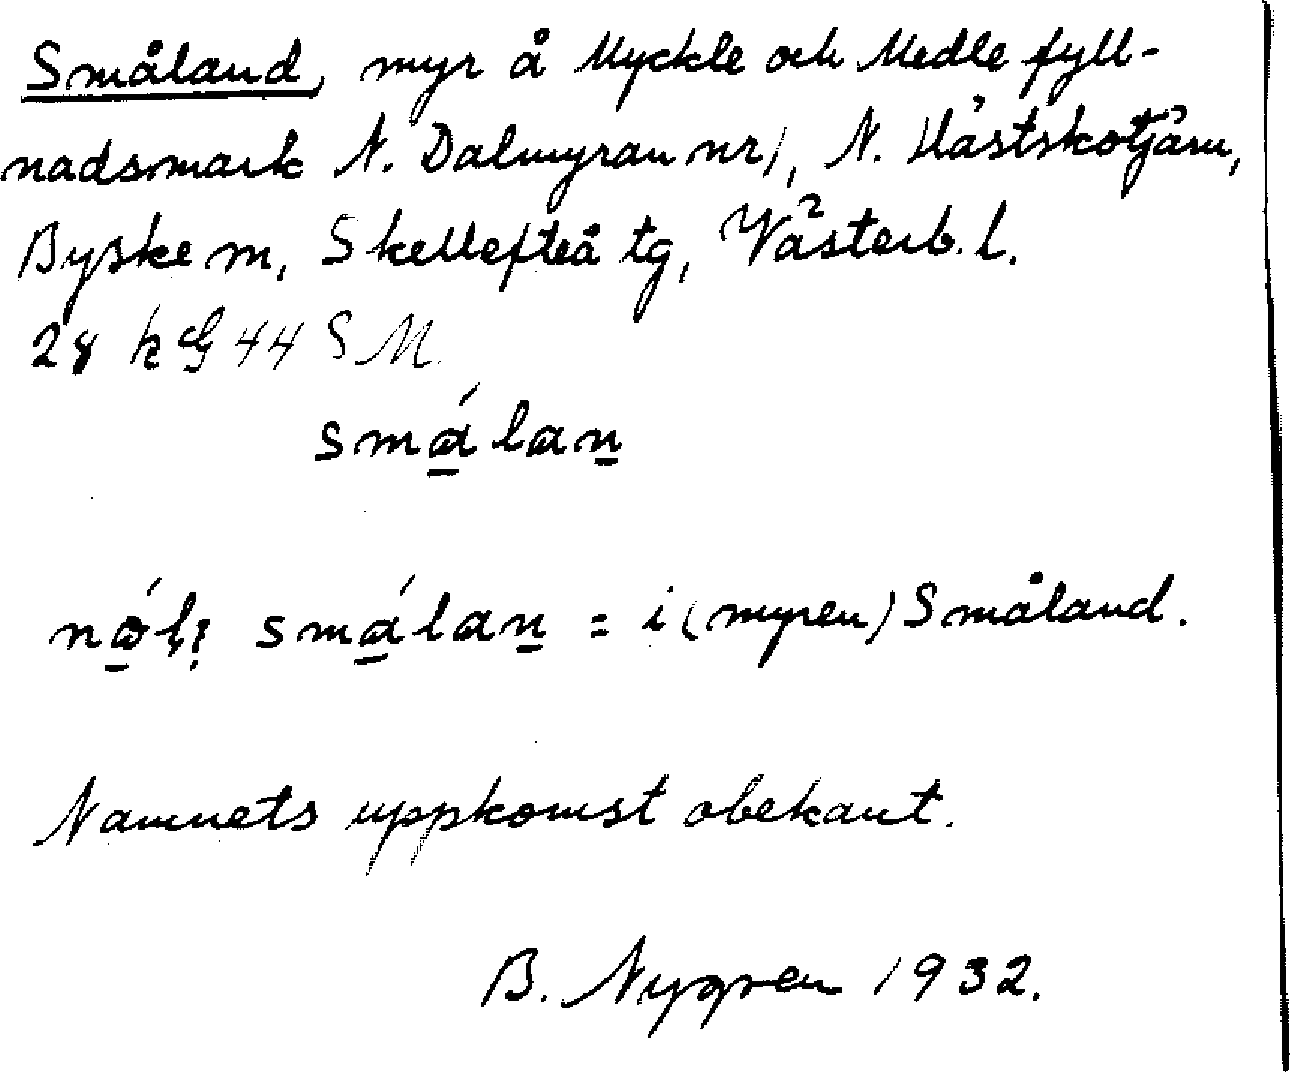 Småland, myr å Myckle och Medle fyll-
nadsmark N. Dalmyran nr 1, N. Hästskotjärn,
Byske sn, Skellefteå tg, Västerb. l.
28 k G 44 SM.
smálan
smálan = i (myren) Småland.
Namnets uppkomst obekant.
B. Nygren 1932.